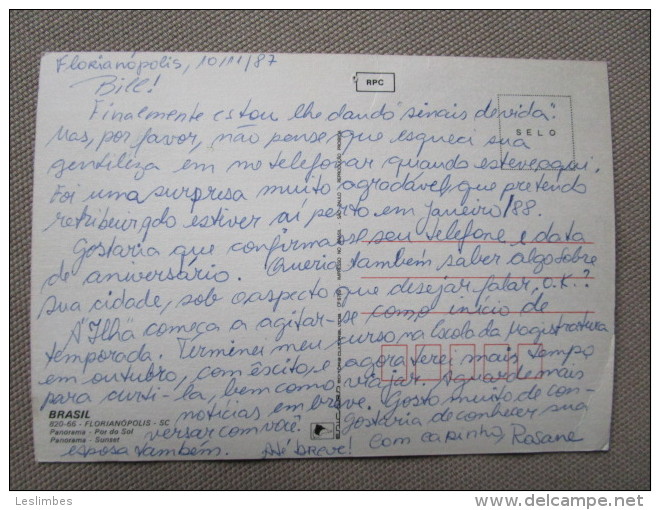 Florianópolis, 10/11/87
RPC
Bill!
Finalmente estou lhe dando "sinais de vida".
SELO
Mas, por favor, não pense que esqueci sua
gentiliza em me telefonar quando esteve aqui.
Foi uma surpresa muito agradável, que pretendo
retribuir qdo estiver aí perto em Janeiro/88.
Gostaria que confirmasse seu telefone e data
de aniversário. Queria também saber algo sobre
sua cidade, sob o aspecto que desejar falar, o.K.?
A "Ilha" começa a agitar-se como início de
temporada. Terminei meu curso, na Escola da Magistratura
em outubro, com êxito, e agora terei mais tempo
para curti-la, bem como viajar. Aguarde mais
notícias em breve. Gosto muito de con-
versar com você. Gostaria de conhecer sua
esposa também. Até breve! Com carinho, Rosane
BRASIL
820-66 - FLORIANÓPOLIS - SC
Panorama - Por do Sol
Panorama - Sunset
Leslimbes
delcampe.net